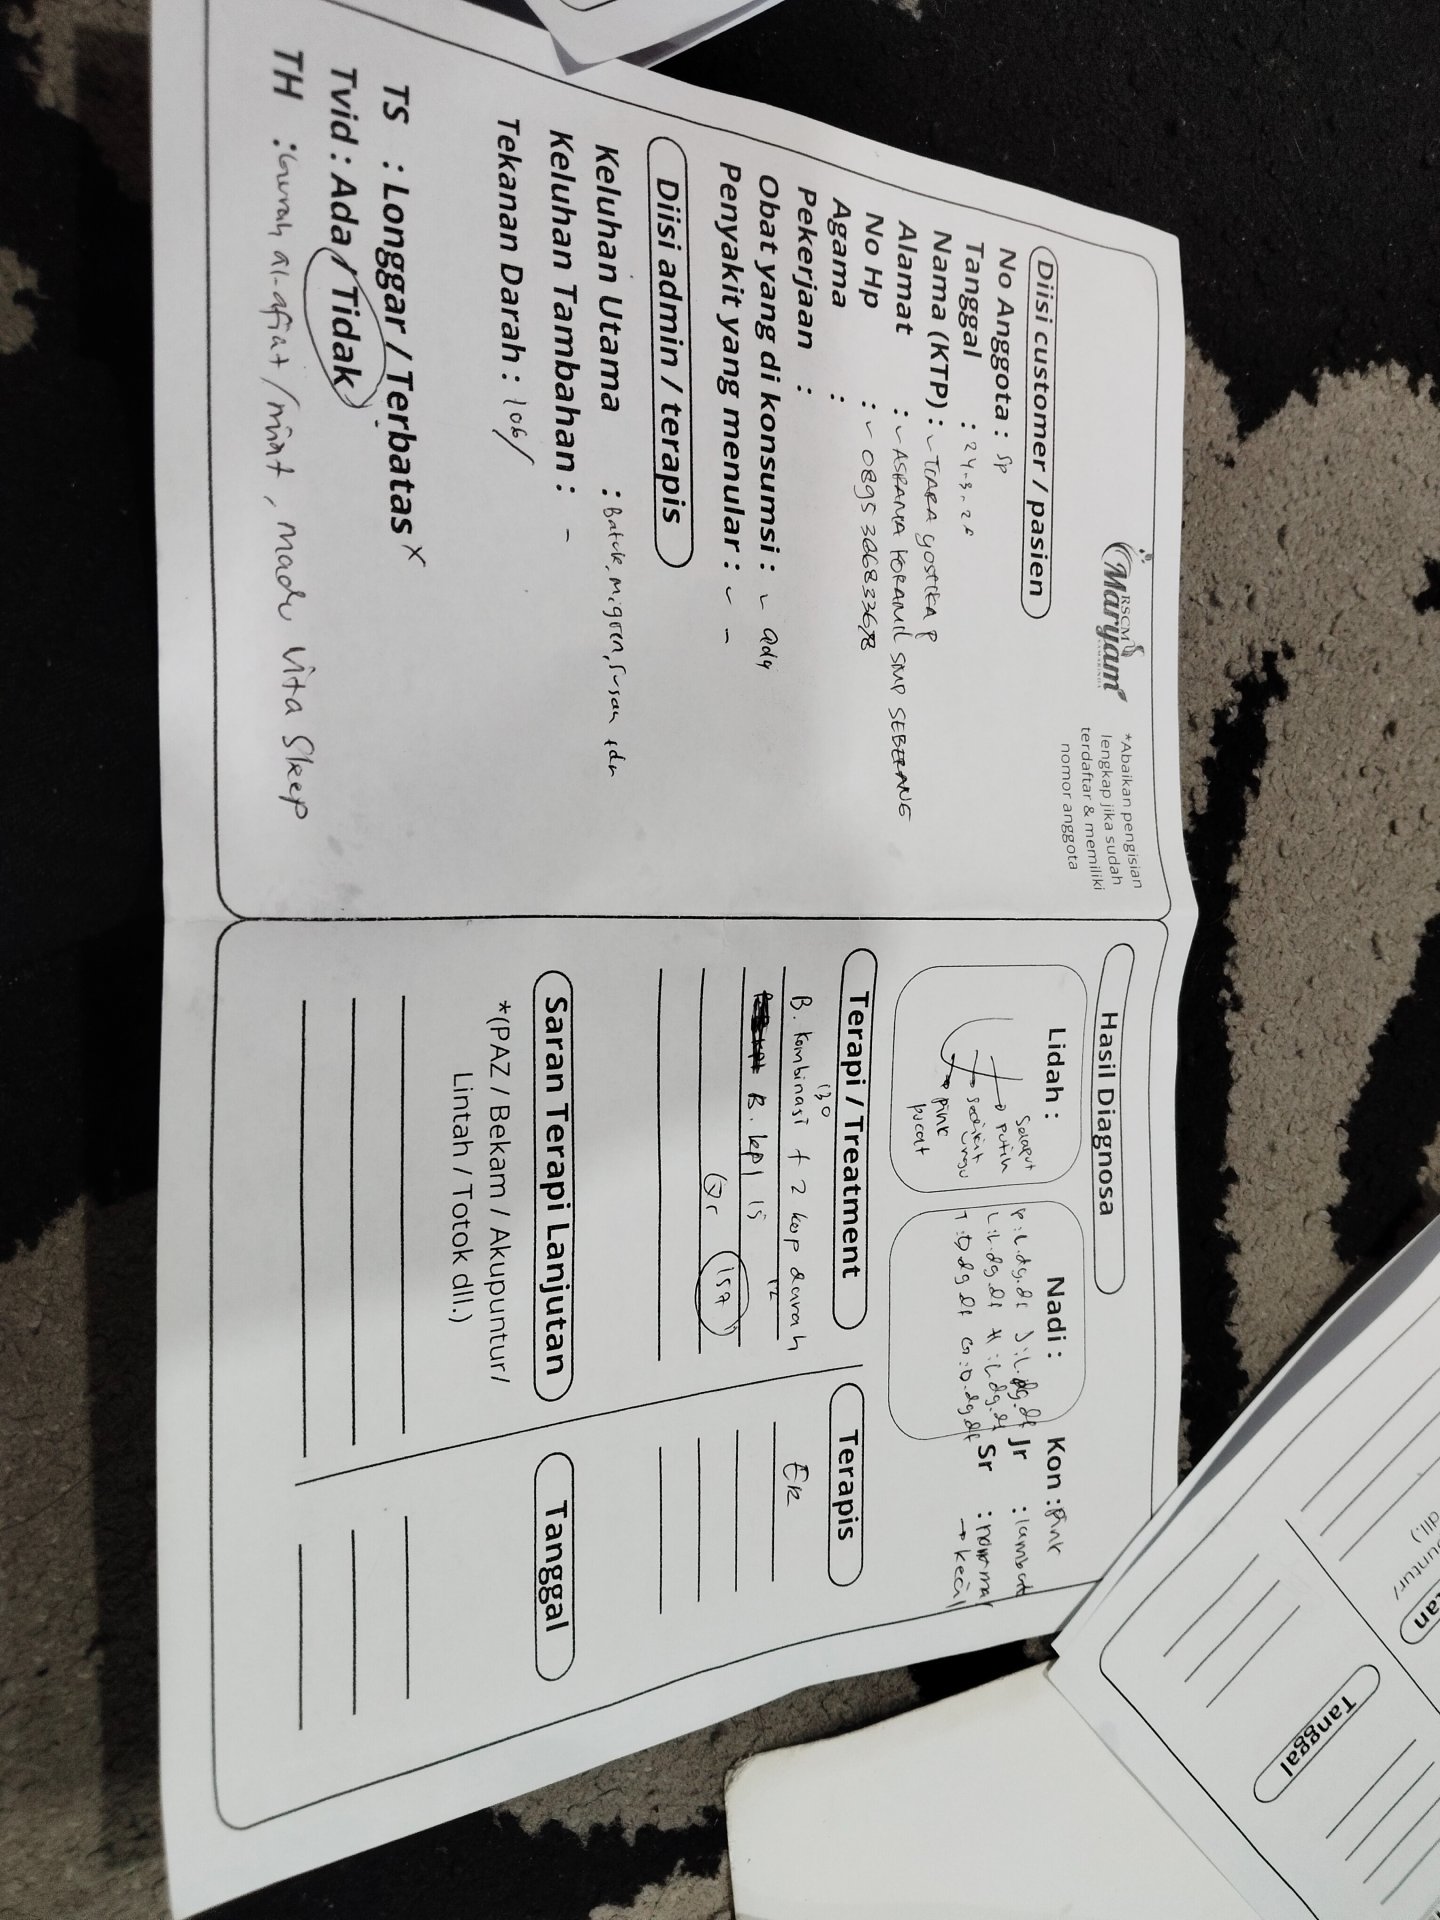 RSCM
Maryam
SAMARINDA
*Abaikan pengisian
lengkap jika sudah
terdaftar & memiliki
nomor anggota
Diisi customer / pasien
No Anggota : Sp
Tanggal : 24-3-26
Nama (KTP) : TIARA
Alamat : ASRAMA KORAMIL SMP SEBERANG
No Hp :
Agama :
Pekerjaan :
Obat yang di konsumsi : ada
Penyakit yang menular : -
Diisi admin / terapis
Keluhan Utama : Batuk, migren, susah tdr
Keluhan Tambahan : -
Tekanan Darah : 106/
TS : Longgar / Terbatas x
Tvid : Ada / Tidak
TH : Gurah al-afiat / mint, madu vita sleep
Hasil Diagnosa
Lidah :
Selaput
putih
sedikit
ungu
pink
pucat
Nadi :
P : L.dg.df J : L.dg.df
L : L.dg.df H : L.dg.df
T : D.dg.df G : D.dg.df
Kon : Pink
Jr : lambat
Sr : normal
→ kecil
Terapi / Treatment
130
B. Kombinasi + 2 kop darah
B. kpl 15
12
157
Terapis
ER
Saran Terapi Lanjutan
*(PAZ / Bekam / Akupuntur/
Lintah / Totok dll.)
Tanggal
untur/
dll.)
tan
Tanggal